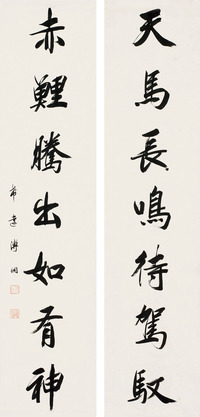 天馬長鳴待駕馭
赤鯉騰出如有神
希逵溥侗